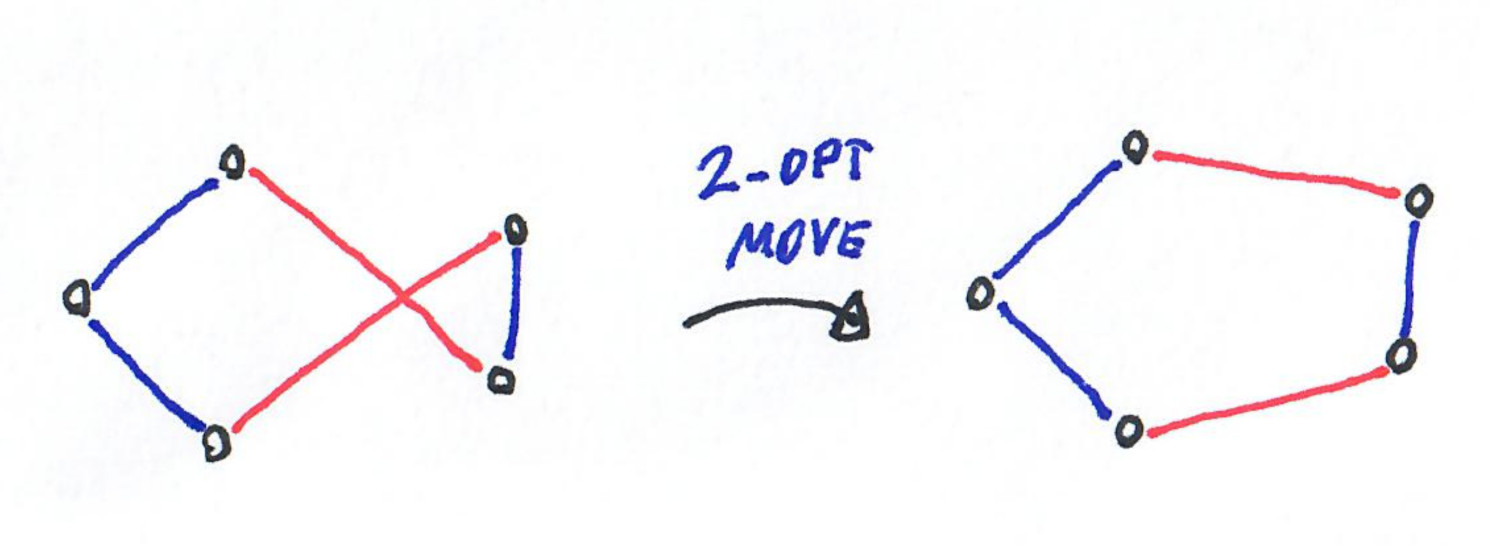 2-OPT
MOVE